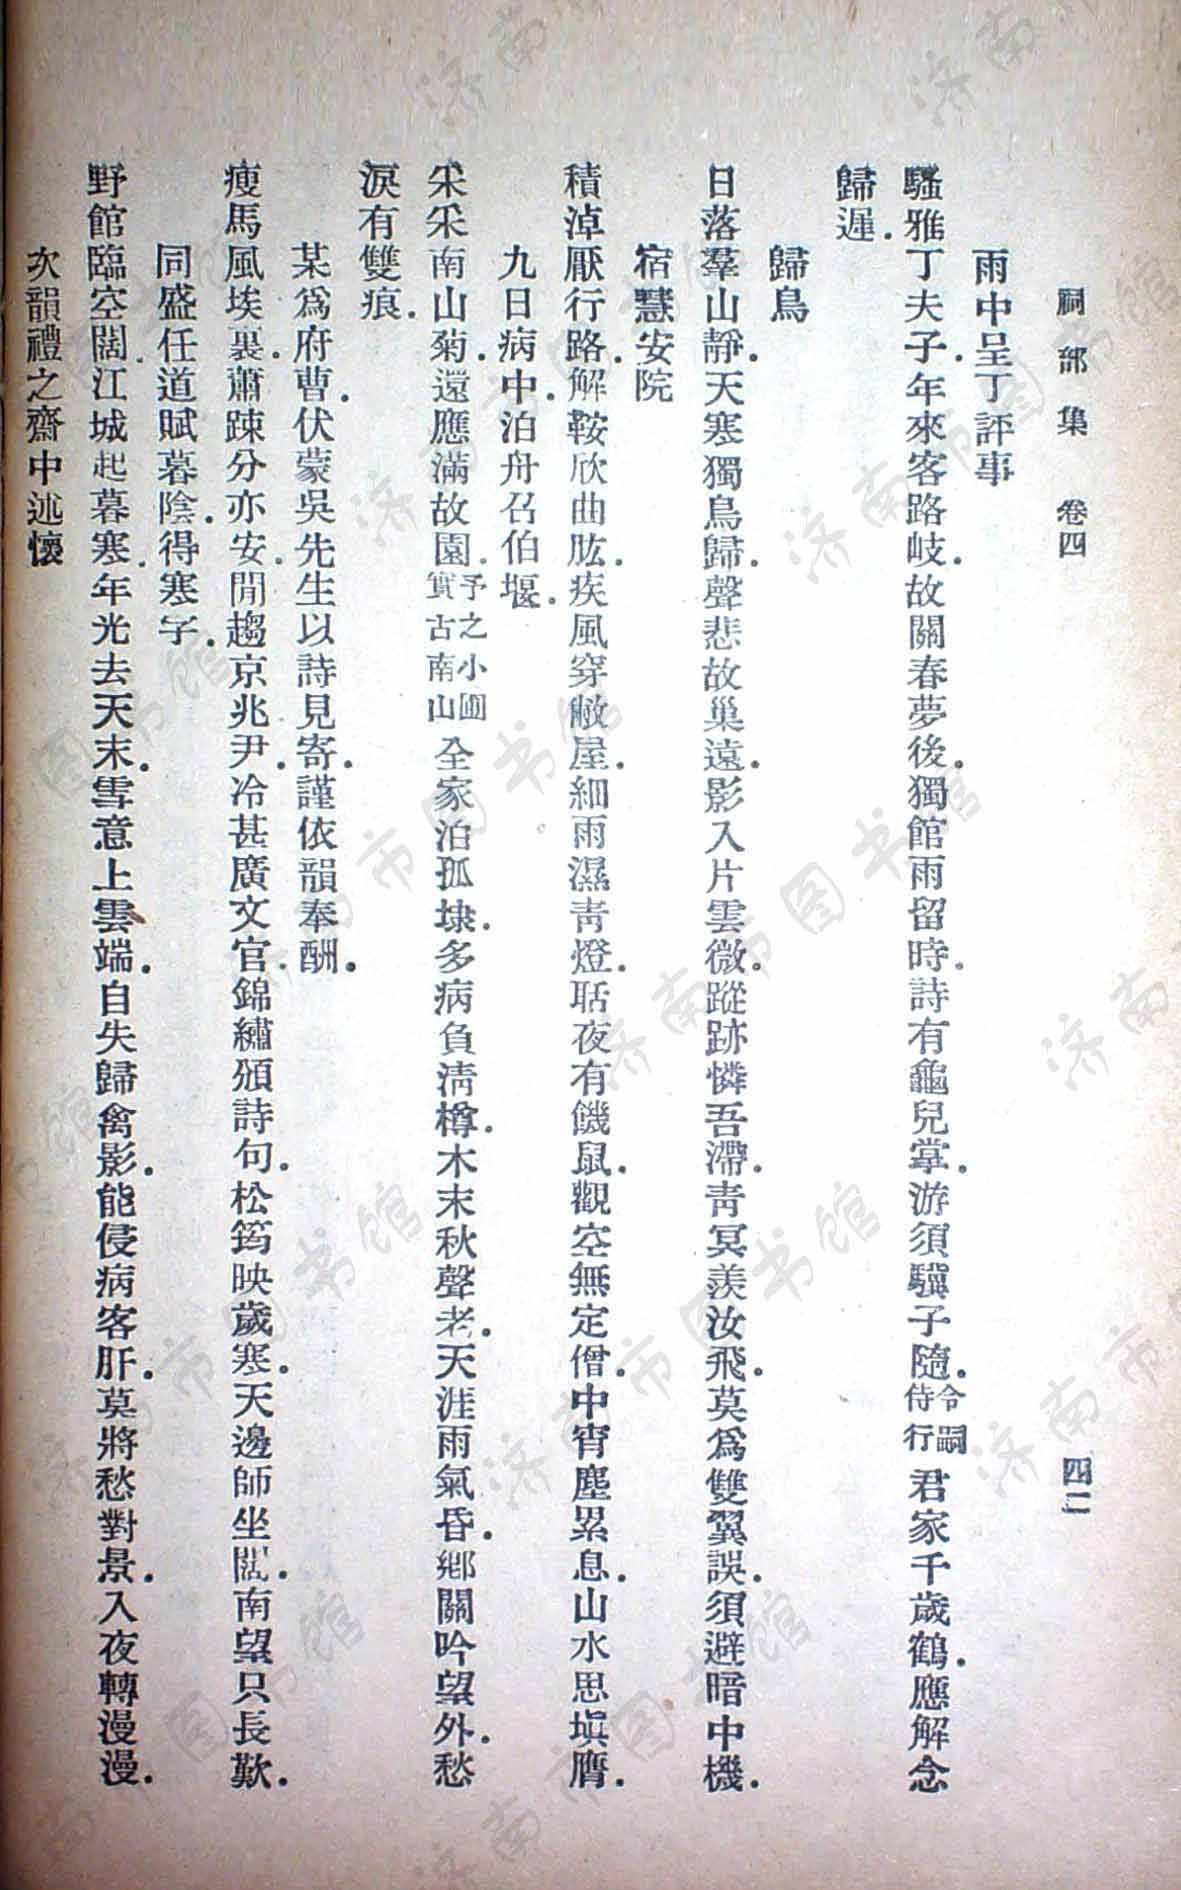 祠部集　卷四　四二
雨中呈丁評事
騷雅丁夫子．年來客路岐．故關春夢後．獨館雨留時．詩有龜兒掌．游須驥子隨．令嗣侍行君家千歲鶴．應解念
歸遲．
歸鳥
日落羣山靜．天寒獨鳥歸．聲悲故巢遠．影入片雲微．蹤跡憐吾滯．青冥羨汝飛．莫爲雙翼誤．須避暗中機．
宿慧安院
積淖厭行路．解鞍欣曲肱．疾風穿敝屋．細雨濕青燈．聒夜有饑鼠．觀空無定僧．中宵塵累息．山水思塡膺．
九日病中．泊舟召伯堰．
采采南山菊．還應滿故園．予之小圃實古南山全家泊孤埭．多病負清樽．木末秋聲老．天涯雨氣昏．鄉關吟望外．愁
淚有雙痕．
某爲府曹．伏蒙吳先生以詩見寄．謹依韻奉酬．
瘦馬風埃裏．蕭疎分亦安．閒趨京兆尹．冷甚廣文官．錦繡頒詩句．松筠映歲寒．天邊師坐闊．南望只長歎．
同盛任道賦暮陰．得寒字．
野館臨空闊．江城起暮寒．年光去天末．雪意上雲端．自失歸禽影．能侵病客肝．莫將愁對景．入夜轉漫漫．
次韻禮之齋中述懷
济南市图书馆